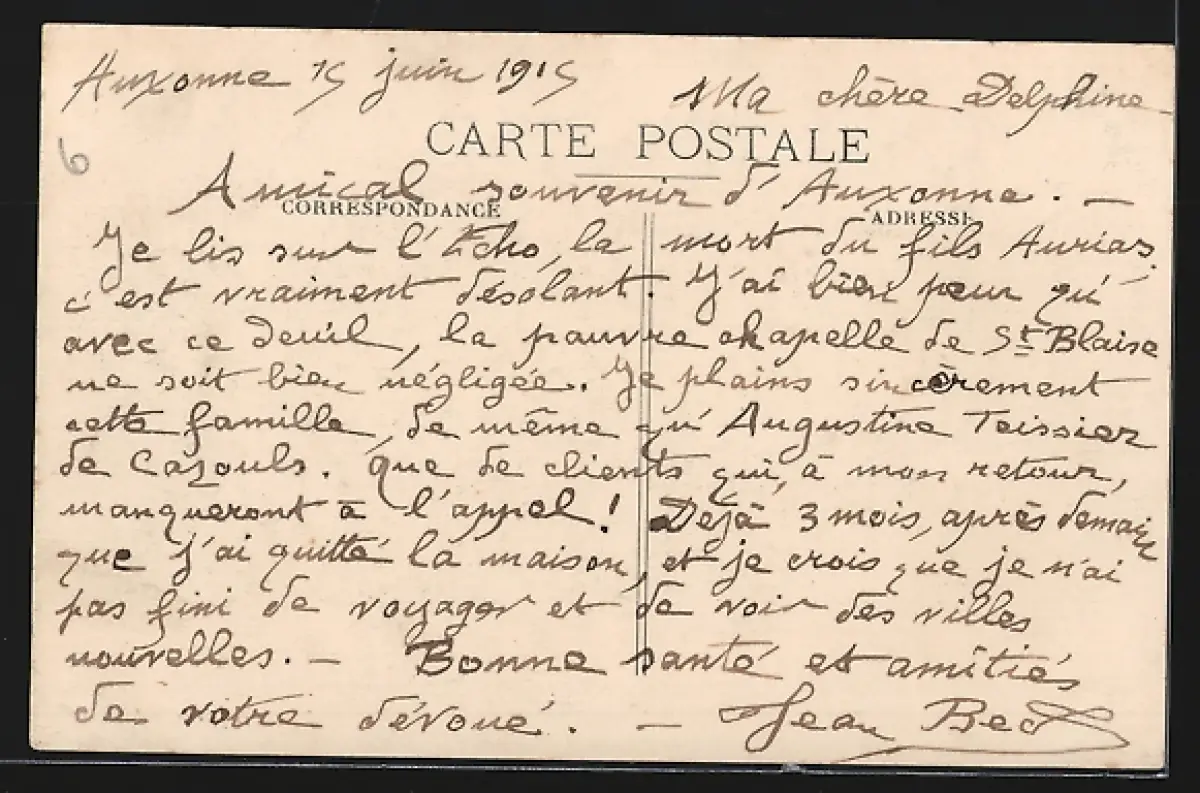 Auxonne 15 juin 1915 Ma chère Delphine
6
CARTE POSTALE
Amical souvenir d'Auxonne. —
CORRESPONDANCE ADRESSE
Je lis sur l'Echo, la mort du fils Aurias.
c'est vraiment désolant. J'ai bien peur qu'
avec ce deuil, la pauvre chapelle de St Blaise
ne soit bien négligée. Je plains sincèrement
cette famille, de même qu'Augustine Teissier
de Cazouls. Que de clients qui, à mon retour,
manqueront à l'appel! Déjà 3 mois, après demain
que j'ai quitté la maison, et je crois que je n'ai
pas fini de voyager et de voir des villes
nouvelles. — Bonne santé et amitiés
de votre dévoué. — Jean Bed